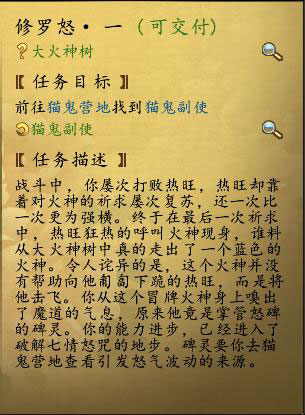 修罗怒·一（可交付）
大火神树
〖任务目标〗
前往猫鬼营地找到猫鬼副使
猫鬼副使
〖任务描述〗
战斗中，你屡次打败热旺，热旺却靠
着对火神的祈求屡次复苏，还一次比
一次更为强横。终于在最后一次祈求
中，热旺狂热的呼叫火神现身，谁料
从大火神树中真的走出了一个蓝色的
火神。令人诧异的是，这个火神并没
有帮助向他匍匐下跪的热旺，而是将
他击飞。你从这个冒牌火神身上嗅出
了魔道的气息，原来他竟是掌管怒碑
的碑灵。你的能力进步，已经进入了
破解七情怒咒的地步。碑灵要你去猫
鬼营地查看引发怒气波动的来源。